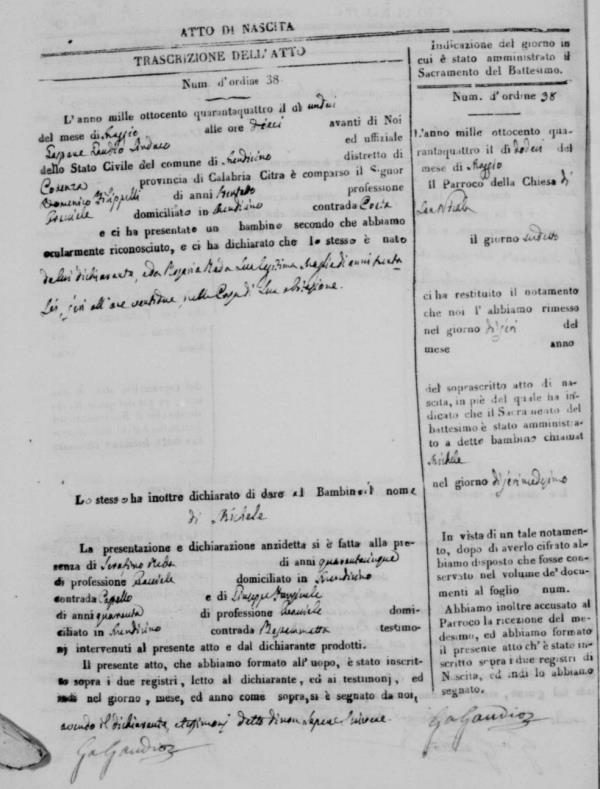 ATTO DI NASCITA
TRASCRIZIONE DELL'ATTO
Num. d'ordine 38
L'anno mille ottocento quarantaquattro il dì undici
del mese di Maggio alle ore dieci avanti di Noi
Gaspare Gaudio Sindaco ed uffiziale
dello Stato Civile del comune di Mendicino distretto di
Cosenza provincia di Calabria Citra è comparso il Signor
Domenico Filippelli di anni professione
domiciliato in Mendicino contrada
e ci ha presentato un bambino secondo che abbiamo
ocularmente riconosciuto, e ci ha dichiarato che lo stesso è nato
da lui dichiarante, e da Rosaria sua legittima moglie di anni
jeri all'ore ventidue, nella Casa di sua abitazione.
Lo stesso ha inoltre dichiarato di dare al Bambino il nome
di Michele
La presentazione e dichiarazione anzidetta si è fatta alla pre-
senza di Serafino di anni quarantacinque
di professione domiciliato in Mendicino
contrada e di Giuseppe
di anni quaranta di professione domi-
ciliato in Mendicino contrada testimo-
nj intervenuti al presente atto e dal dichiarante prodotti.
Il presente atto, che abbiamo formato all'uopo, è stato inscrit-
to sopra i due registri, letto al dichiarante, ed ai testimonj, ed
indi nel giorno, mese, ed anno come sopra, si è segnato da noi,
avendo il dichiarante, e testimonj detto di non sapere scrivere.
GaGaudio
Indicazione del giorno in
cui è stato amministrato il
Sacramento del Battesimo.
Num. d'ordine 38
L'anno mille ottocento qua-
rantaquattro il dì dodeci del
mese di Maggio
Il Parroco della Chiesa di
San Nicola
il giorno sudetto
ci ha restituito il notamento
che noi l'abbiamo rimesso
nel giorno di jeri del
mese anno
del soprascritto atto di na-
scita, in piè del quale ha in-
dicato che il Sacramento del
battesimo è stato amministra-
to a detto bambino chiamat
Michele
nel giorno di jeri medesimo
In vista di un tale notamen-
to, dopo di averlo cifrato ab-
biamo disposto che fosse con-
servato nel volume de' docu-
menti al foglio num.
Abbiamo inoltre accusato al
Parroco la ricezione del me-
desimo, ed abbiamo formato
il presente atto ch'è stato in-
scritto sopra i due registri di
Nascita, ed indi lo abbiamo
segnato.
GaGaudio